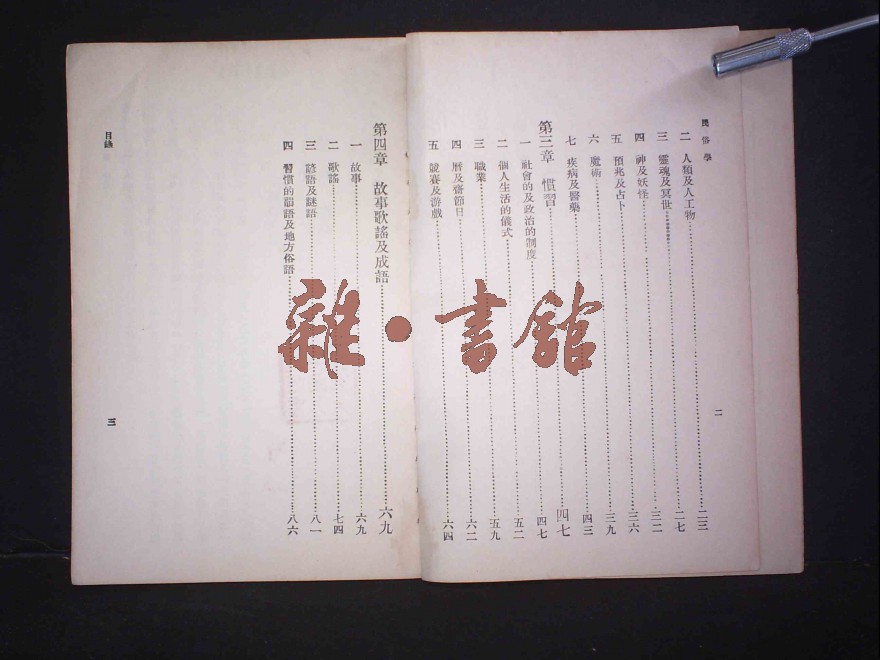 民俗學
二 人類及人工物……二三
三 靈魂及冥世……二七
四 神及妖怪……三二
五 預兆及占卜……三六
六 魔術……三九
七 疾病及醫藥……四三
第三章 慣習……四七
一 社會的及政治的制度……四七
二 個人生活的儀式……五二
三 職業……五九
四 曆及齋節日……六二
五 競賽及游戲……六四
二
第四章 故事歌謠及成語……六九
一 故事……六九
二 歌謠……七四
三 諺語及謎語……八一
四 習慣的韻語及地方俗語……八六
目錄
三
雜·書館